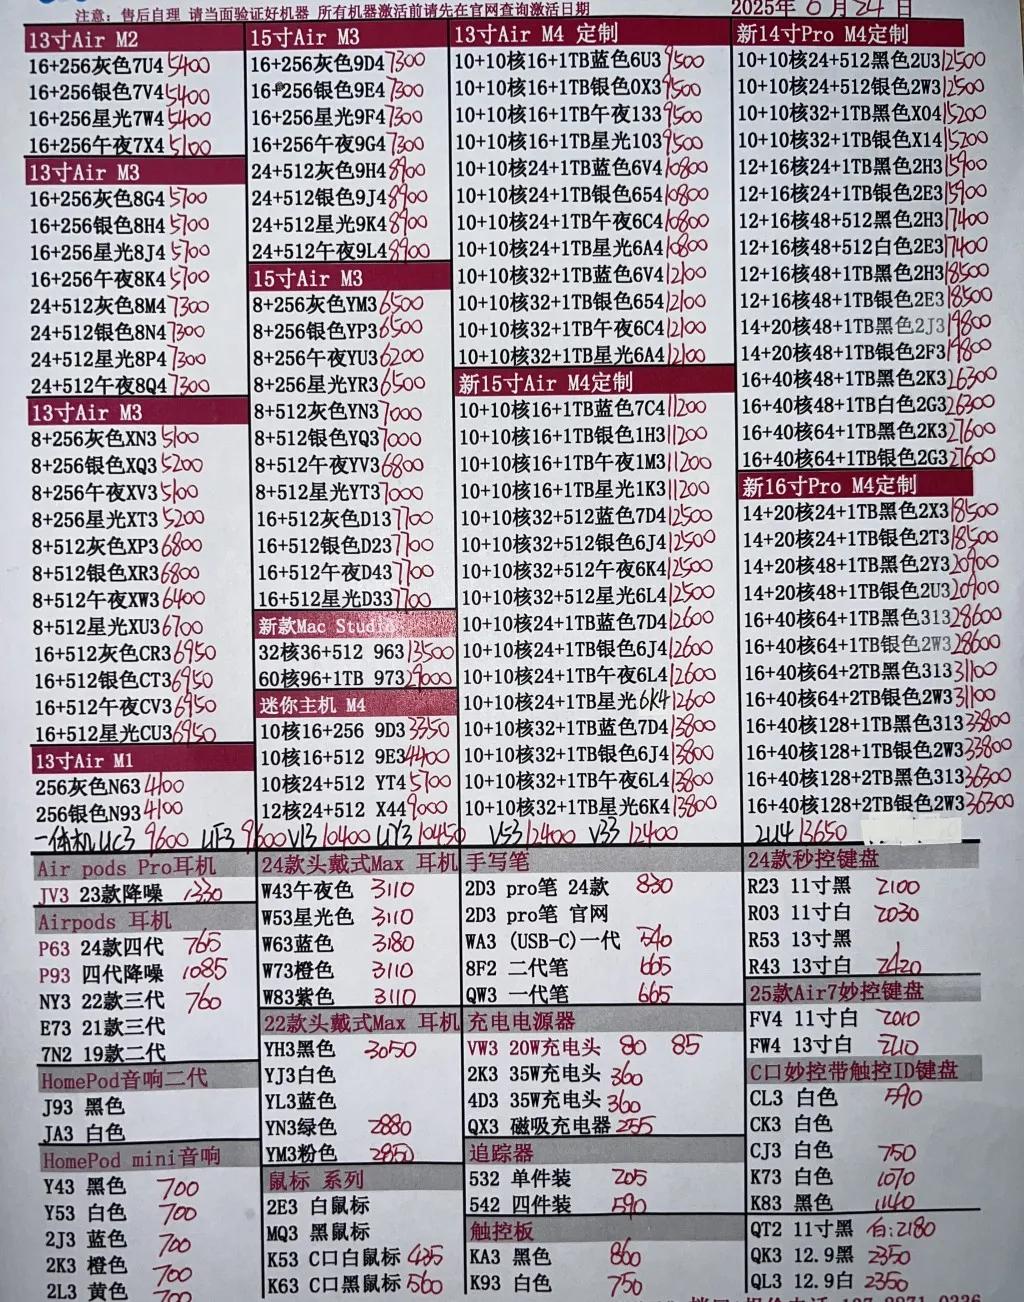 注意：售后自理 请当面验证好机器 所有机器激活前请先在官网查询激活日期
2025年 6月24日
13寸Air M2
16+256灰色7U4 5400
16+256银色7V4 5400
16+256星光7W4 5400
16+256午夜7X4 5100
13寸Air M3
16+256灰色8G4 5700
16+256银色8H4 5700
16+256星光8J4 5700
16+256午夜8K4 5700
24+512灰色8M4 7300
24+512银色8N4 7300
24+512星光8P4 7300
24+512午夜8Q4 7300
13寸Air M3
8+256灰色XN3 5100
8+256银色XQ3 5200
8+256午夜XV3 5100
8+256星光XT3 5200
8+512灰色XP3 6800
8+512银色XR3 6800
8+512午夜XW3 6400
8+512星光XU3 6700
16+512灰色CR3 6950
16+512银色CT3 6950
16+512午夜CV3 6950
16+512星光CU3 6950
13寸Air M1
256灰色N63 4100
256银色N93 4100
15寸Air M3
16+256灰色9D4 7300
16+256银色9E4 7300
16+256星光9F4 7300
16+256午夜9G4 7300
24+512灰色9H4 8900
24+512银色9J4 8900
24+512星光9K4 8900
24+512午夜9L4 8900
15寸Air M3
8+256灰色YM3 6500
8+256银色YP3 6500
8+256午夜YU3 6200
8+256星光YR3 6500
8+512灰色YN3 7000
8+512银色YQ3 7000
8+512午夜YV3 6800
8+512星光YT3 7000
16+512灰色D13 7700
16+512银色D23 7700
16+512午夜D43 7700
16+512星光D33 7700
新款Mac Studio
32核36+512 963 13500
60核96+1TB 973 27000
迷你主机 M4
10核16+256 9D3 3350
10核16+512 9E3 4400
10核24+512 YT4 5700
12核24+512 X44 9000
13寸Air M4 定制
10+10核16+1TB蓝色6U3 9500
10+10核16+1TB银色0X3 9500
10+10核16+1TB午夜133 9500
10+10核16+1TB星光103 9500
10+10核24+1TB蓝色6V4 10800
10+10核24+1TB银色654 10800
10+10核24+1TB午夜6C4 10800
10+10核24+1TB星光6A4 10800
10+10核32+1TB蓝色6V4 12100
10+10核32+1TB银色654 12100
10+10核32+1TB午夜6C4 12100
10+10核32+1TB星光6A4 12100
新15寸Air M4定制
10+10核16+1TB蓝色7C4 11200
10+10核16+1TB银色1H3 11200
10+10核16+1TB午夜1M3 11200
10+10核16+1TB星光1K3 11200
10+10核32+512蓝色7D4 12500
10+10核32+512银色6J4 12500
10+10核32+512午夜6K4 12500
10+10核32+512星光6L4 12500
10+10核24+1TB蓝色7D4 12600
10+10核24+1TB银色6J4 12600
10+10核24+1TB午夜6L4 12600
10+10核24+1TB星光6K4 12600
10+10核32+1TB蓝色7D4 13800
10+10核32+1TB银色6J4 13800
10+10核32+1TB午夜6L4 13800
10+10核32+1TB星光6K4 13800
新14寸Pro M4定制
10+10核24+512黑色2U3 12500
10+10核24+512银色2W3 12500
10+10核32+1TB黑色X04 15200
10+10核32+1TB银色X14 15200
12+16核24+1TB黑色2H3 15900
12+16核24+1TB银色2E3 15900
12+16核48+512黑色2H3 17400
12+16核48+512白色2E3 17400
12+16核48+1TB黑色2H3 18500
12+16核48+1TB银色2E3 18500
14+20核48+1TB黑色2J3 19800
14+20核48+1TB银色2F3 19800
16+40核48+1TB黑色2K3 26300
16+40核48+1TB白色2G3 26300
16+40核64+1TB黑色2K3 27600
16+40核64+1TB银色2G3 27600
新16寸Pro M4定制
14+20核24+1TB黑色2X3 18500
14+20核24+1TB银色2T3 18500
14+20核48+1TB黑色2Y3 20900
14+20核48+1TB银色2U3 20900
16+40核64+1TB黑色313 28600
16+40核64+1TB银色2W3 28600
16+40核64+2TB黑色313 31100
16+40核64+2TB银色2W3 31100
16+40核128+1TB黑色313 33800
16+40核128+1TB银色2W3 33800
16+40核128+2TB黑色313 36300
16+40核128+2TB银色2W3 36300
一体机 UC3 9600 UF3 9600 V13 10400 UY3 10450 V53 12400 V33 12400 2U4 13650
Air pods Pro耳机
JV3 23款降噪 1330
Airpods 耳机
P63 24款四代 765
P93 四代降噪 1085
NY3 22款三代 760
E73 21款三代
7N2 19款二代
HomePod音响二代
J93 黑色
JA3 白色
HomePod mini音响
Y43 黑色 700
Y53 白色 700
2J3 蓝色 700
2K3 橙色 700
2L3 黄色 700
24款头戴式Max 耳机
W43午夜色 3110
W53星光色 3110
W63蓝色 3180
W73橙色 3110
W83紫色 3110
22款头戴式Max 耳机
YH3黑色 3050
YJ3白色
YL3蓝色
YN3绿色 2880
YM3粉色 2950
鼠标 系列
2E3 白鼠标
MQ3 黑鼠标
K53 C口白鼠标 435
K63 C口黑鼠标 560
手写笔
2D3 pro笔 24款 830
2D3 pro笔 官网
WA3 (USB-C)一代 540
8F2 二代笔 665
QW3 一代笔 665
充电电源器
VW3 20W充电头 80 85
2K3 35W充电头 360
4D3 35W充电头 360
QX3 磁吸充电器 255
追踪器
532 单件装 205
542 四件装 590
触控板
KA3 黑色 860
K93 白色 750
24款秒控键盘
R23 11寸黑 2100
R03 11寸白 2030
R53 13寸黑
R43 13寸白 2420
25款Air7妙控键盘
FV4 11寸白 2010
FW4 13寸白 2110
C口妙控带触控ID键盘
CL3 白色 590
CK3 白色
CJ3 白色 750
K73 白色 1070
K83 黑色 1140
QT2 11寸黑 白:2180
QK3 12.9黑 2350
QL3 12.9白 2350